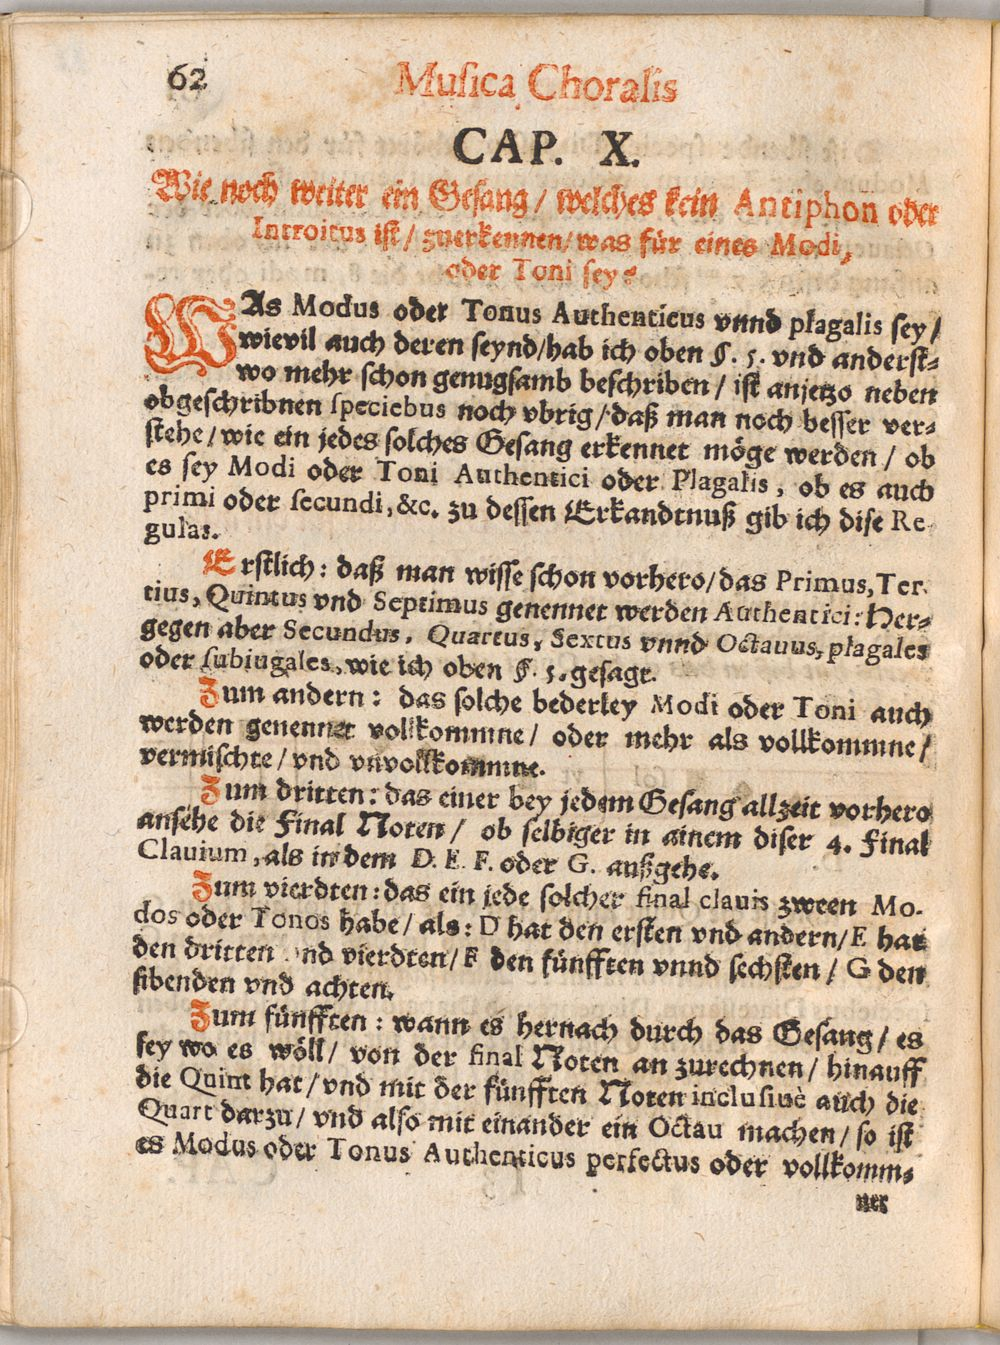 62 Musica Choralis
CAP. X.
Wie noch weiter ein Gesang / welches kein Antiphon oder
Introitus ist / zuerkennen / was für eines Modi,
oder Toni sey?
WAs Modus oder Tonus Authenticus vnnd plagalis sey /
wievil auch deren seynd / hab ich oben §. 5. vnd anderst-
wo mehr schon genugsamb beschriben / ist anjetzo neben
obgeschribnen speciebus noch vbrig / daß man noch besser ver-
stehe / wie ein jedes solches Gesang erkennet möge werden / ob
es sey Modi oder Toni Authentici oder Plagalis, ob es auch
primi oder secundi, &c. zu dessen Erkandtnuß gib ich dise Re-
gulas.
Erstlich: daß man wisse schon vorhero / das Primus, Ter-
tius, Quintus vnd Septimus genennet werden Authentici: Her-
gegen aber Secundus, Quartus, Sextus vnnd Octauus, plagales
oder subiugales, wie ich oben §. 5. gesagt.
Zum andern: das solche bederley Modi oder Toni auch
werden genennet vollkommne / oder mehr als vollkommne /
vermischte / vnd vnvollkommne.
Zum dritten: das einer bey jedem Gesang allzeit vorhero
ansehe die Final Noten / ob selbiger in ainem diser 4. Final
Clauium, als in dem D. E. F. oder G. außgehe.
Zum vierdten: das ein jede solcher final clauis zween Mo-
dos oder Tonos habe / als: D hat den ersten vnd andern / E hat
den dritten vnd vierdten / F den fünfften vnnd sechsten / G den
sibenden vnd achten.
Zum fünfften: wann es hernach durch das Gesang / es
sey wo es wöll / von der final Noten an zurechnen / hinauff
die Quint hat / vnd mit der fünfften Noten inclusiuè auch die
Quart darzu / vnd also mit einander ein Octau machen / so ist
es Modus oder Tonus Authenticus perfectus oder vollkomm-
ner